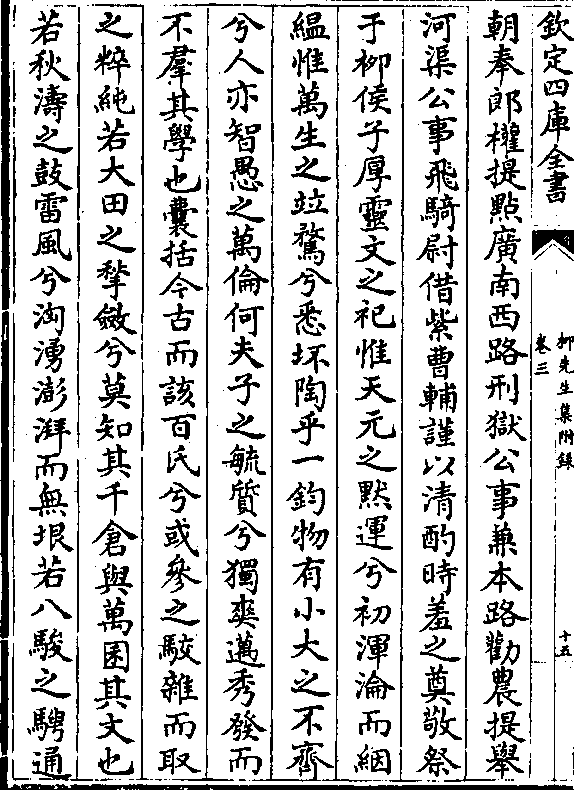 欽定四庫全書
柳先生集附錄
卷三
十五
朝奉郎權提點廣南西路刑獄公事兼本路勸農提舉
河渠公事飛騎尉借紫曹輔謹以清酌時羞之奠敬祭
于柳侯子厚靈文之祀惟天元之默運兮初渾淪而絪
緼惟萬生之竝騖兮悉坯陶乎一鈞物有小大之不齊
兮人亦智愚之萬倫何夫子之毓質兮獨爽邁秀發而
不羣其學也囊括今古而該百氏兮或參之駮雜而取
之粹純若大田之㲠斂兮莫知其千倉與萬囷其文也
若秋濤之鼓雷風兮洶湧澎湃而無垠若八駿之騁通